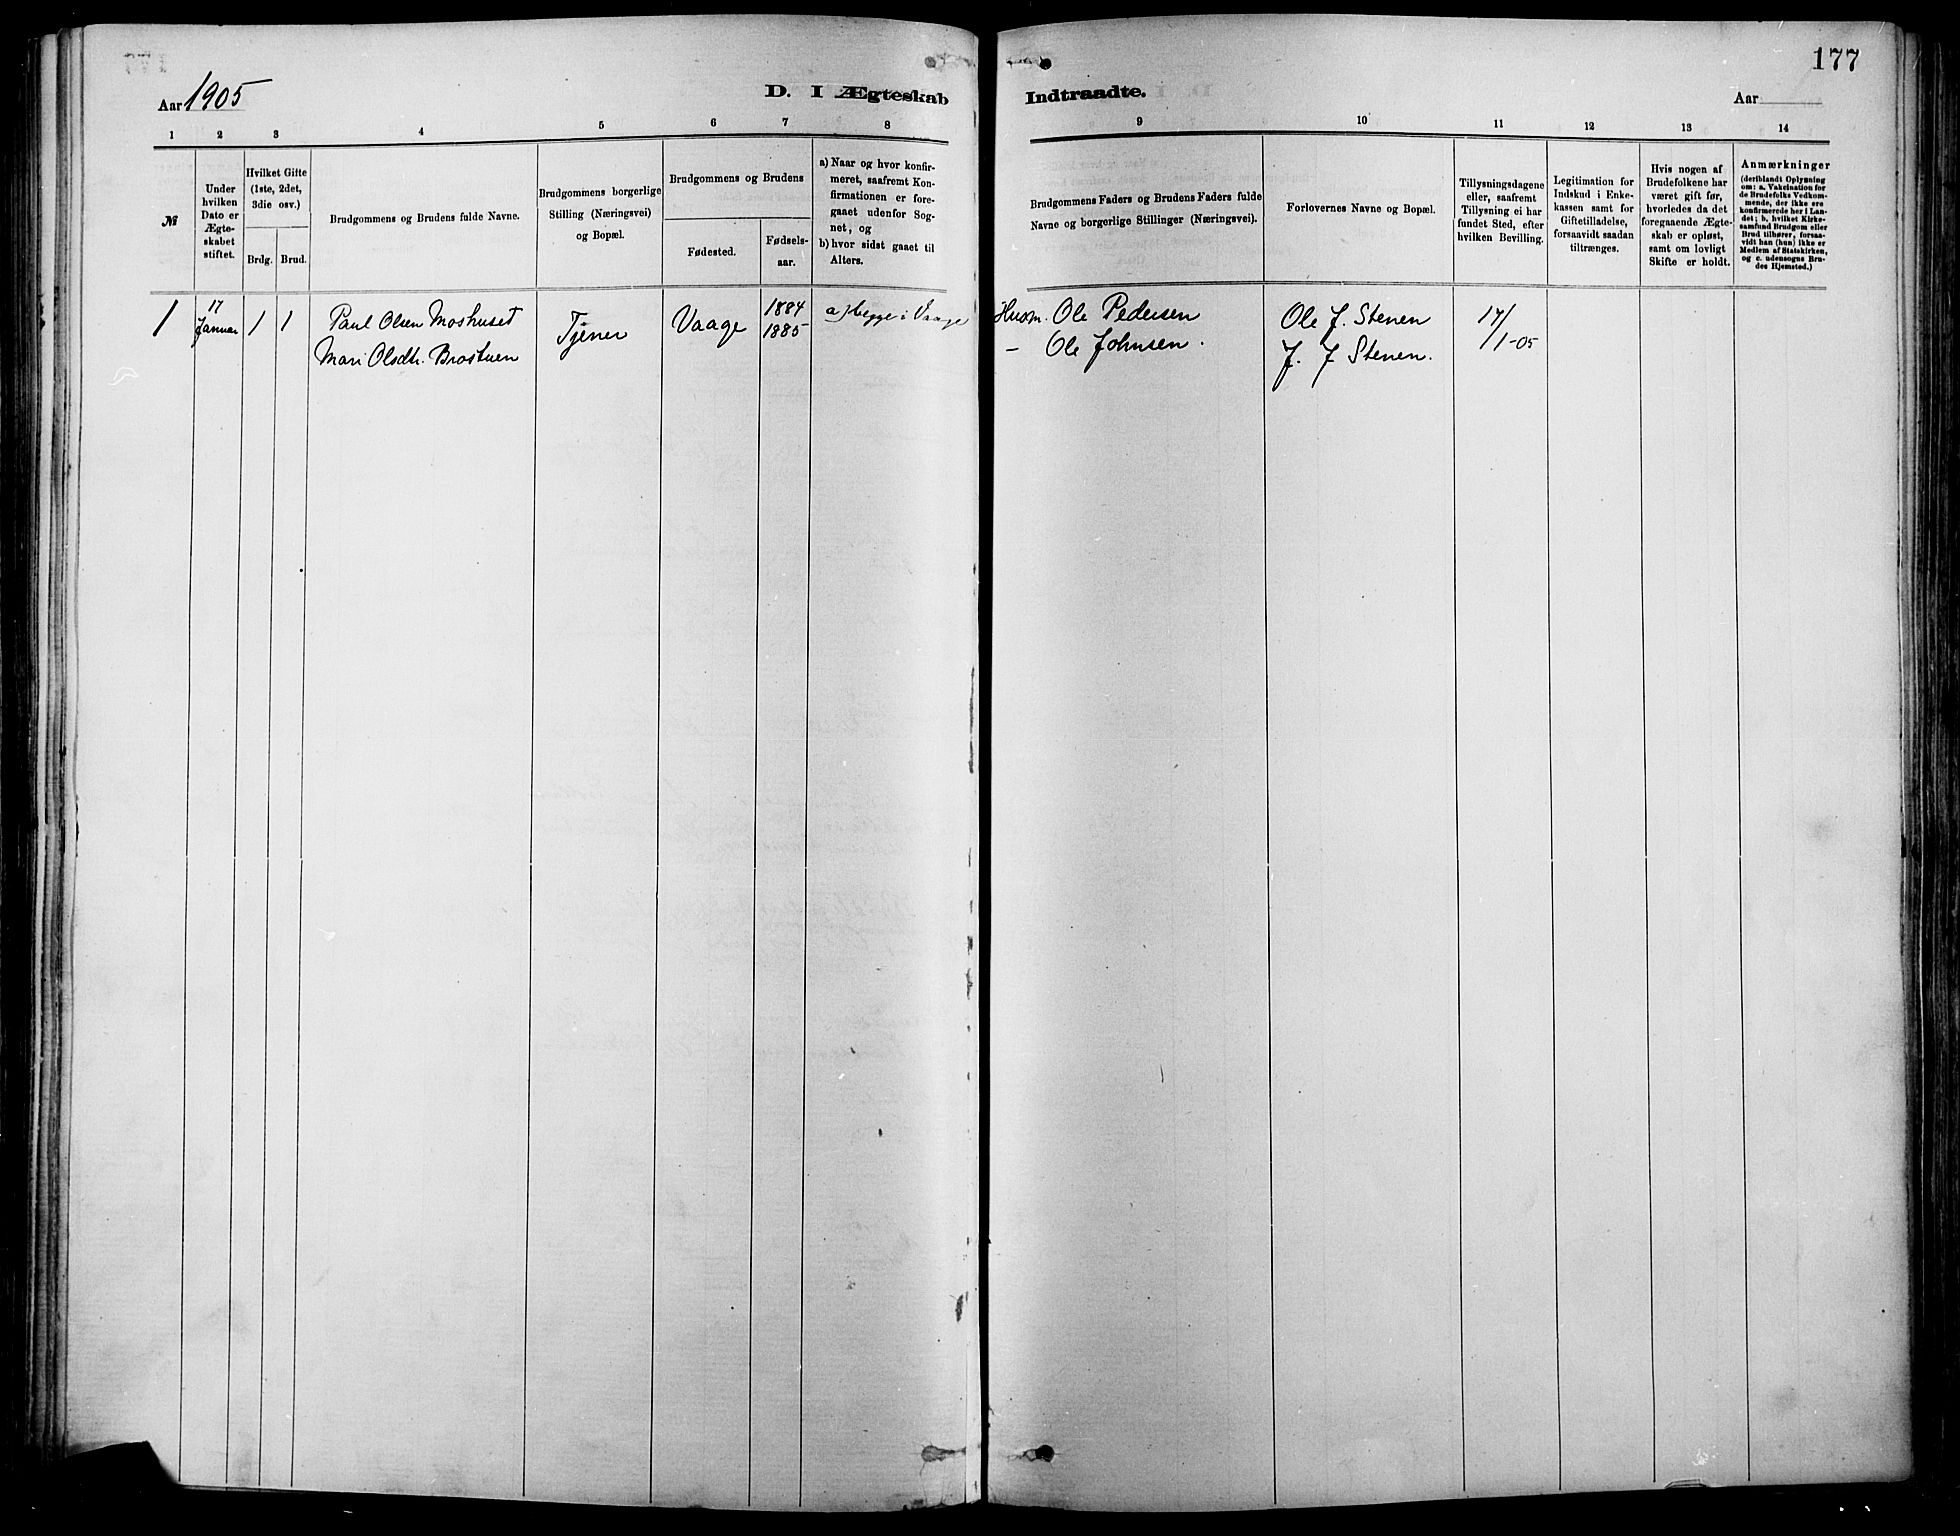 Aar 1905
D. I Ægteskab
Indtraadte.
177
Aar
1 2 3 4 5 6 7 8 9 10 11 12 13 14
№
Under
hvilken
Dato er
Ægte-
skabet
stiftet.
Hvilket Gifte
(1ste, 2det,
3die osv.)
Brdg. Brud.
Brudgommens og Brudens fulde Navne.
Brudgommens borgerlige
Stilling (Næringsvei)
og Bopæl.
Brudgommens og Brudens
Fødested.
Fødsels-
aar.
a) Naar og hvor konfir-
meret, saafremt Kon-
firmationen er fore-
gaaet udenfor Sog-
net, og
b) hvor sidst gaaet til
Alters.
Brudgommens Faders og Brudens Faders fulde
Navne og borgerlige Stillinger (Næringsvei).
Forlovernes Navne og Bopæl.
Tillysningsdagene
eller, saafremt
Tillysning ei har
fundet Sted, efter
hvilken Bevilling.
Legitimation for
Indskud i Enke-
kassen samt for
Giftetilladelse,
forsaavidt saadan
tiltrænges.
Hvis nogen af
Brudefolkene har
været gift før,
hvorledes da det
foregaaende Ægte-
skab er opløst,
samt om lovligt
Skifte er holdt.
Anmærkninger
(deriblandt Oplysning
om: a. Vakcination for
de Brudefolks Vedkom-
mende, der ikke ere
konfirmerede her i Lan-
det; b, hvilket Kirke-
samfund Brudgom eller
Brud tilhører, forsaa-
vidt han (hun) ikke er
Medlem af Statskirken,
og c. udensogns Bru-
des Hjemsted.)
1
17
Januar
1 1
Paul Olsen Moshuset
Mari Olsdtr. Brostuen
Tjener
Vaage
1884
1885
a) begge i Vaage
Husm. Ole Pedersen
– Ole Johnsen.
Ole J. Stenen
J. J Stenen.
17/
/1-05